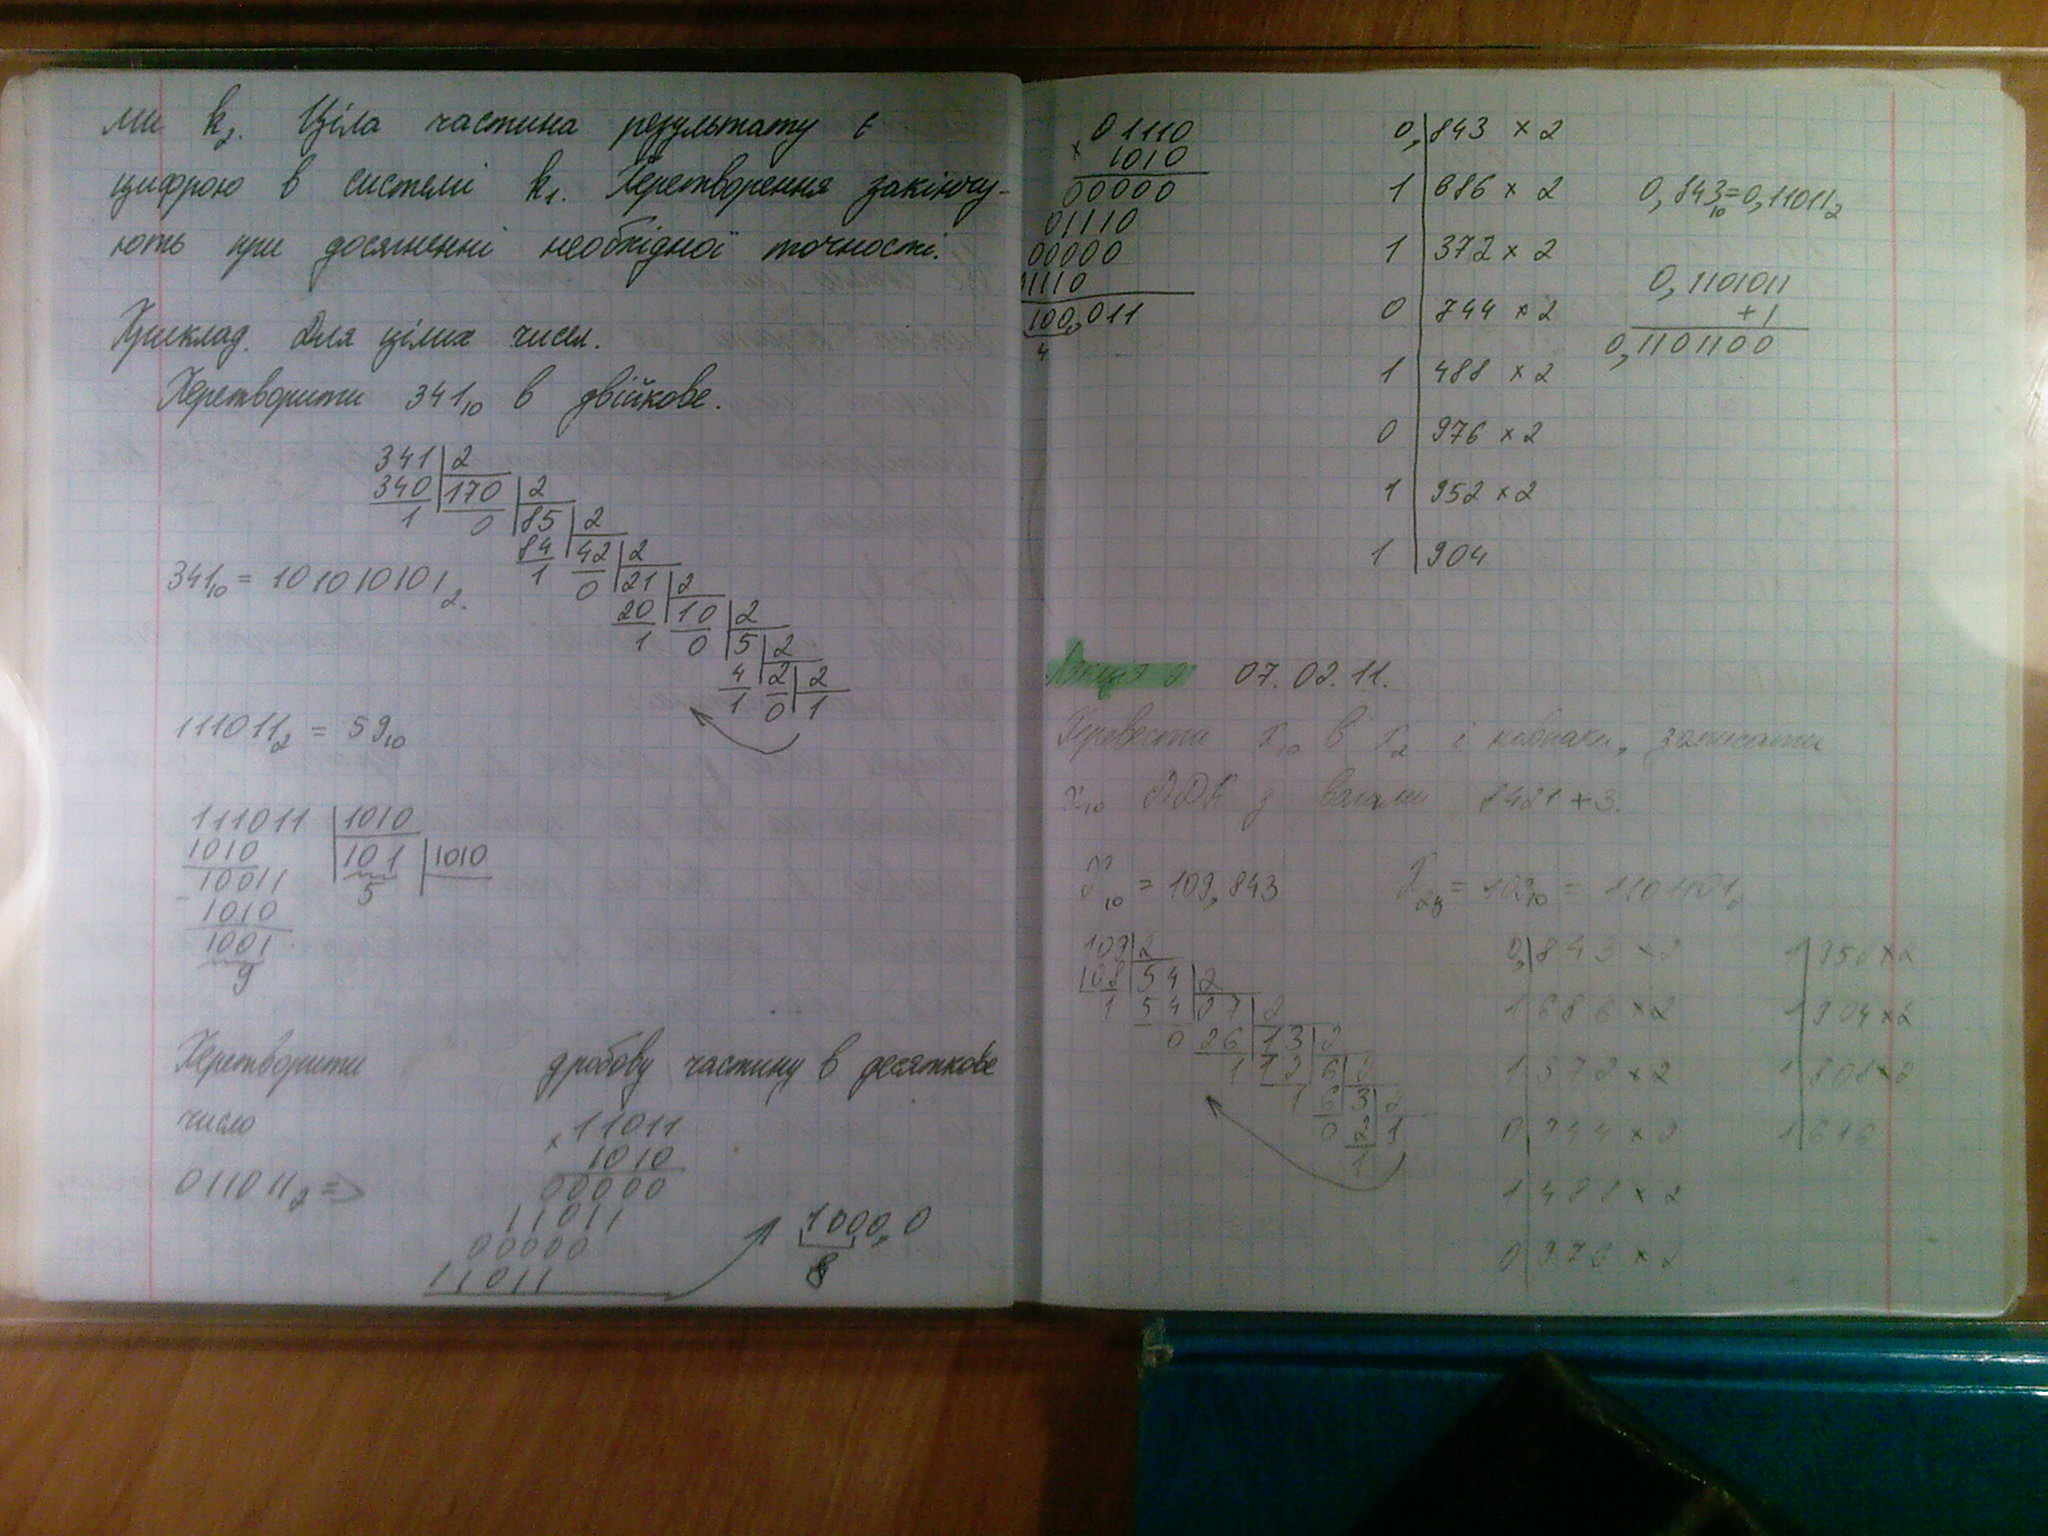 ми k₂. Ціла частина результату є
цифрою в системі k₁. Перетворення закінчу-
ють при досягненні необхідної точності.
Приклад. Для цілих чисел.
Перетворити 341₁₀ в двійкове.
341 | 2
340 | 170 | 2
1 0 | 85 | 2
84 | 42 | 2
1 0 | 21 | 2
341₁₀ = 101010101₂.
20 | 10 | 2
1 0 | 5 | 2
4 | 2 | 2
1 0 | 1
111011₂ = 59₁₀
111011 | 1010
1010 | 101 | 1010
10011 5
- 1010
1001
9
Перетворити дробову частину в десяткове
число
011011₂ =>
× 11011
1010
00000
11011
00000
11011
1000,0
8
01110
× 1010
00000
01110
00000
1110
100,011
4
0, | 843 × 2
1 | 686 × 2
1 | 372 × 2
0 | 744 × 2
1 | 488 × 2
0 | 976 × 2
1 | 952 × 2
1 | 904
0,843₁₀=0,11011₂
0,1101011
+1
0,1101100
Лекція 2 07.02.11.
Перевести X₁₀ в X₂ і навпаки, записати
X₁₀ ДДК з вагами 8421+3.
X₁₀ = 109,843
X₂ц = 109₁₀ = 1101101₂
109 | 2
108 | 54 | 2
1 54 | 27 | 2
0 26 | 13 | 2
1 12 | 6 | 2
1 6 | 3 | 2
0 2 | 1
1
0, | 843 × 2
1 | 686 × 2
1 | 372 × 2
0 | 744 × 2
1 | 488 × 2
0 | 976 × 2
1 | 952 × 2
1 | 904 × 2
1 | 808 × 2
1 | 616